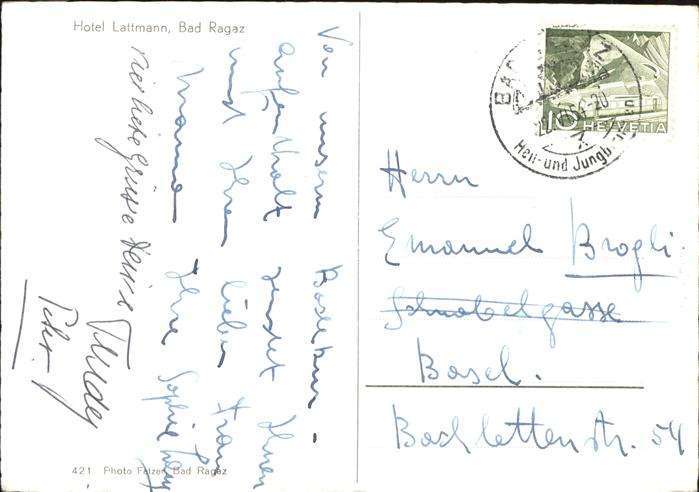 Hotel Lattmann, Bad Ragaz
Von unserm Badekur-
aufenthalt sendet Ihnen
und Ihrer lieben Frau
Mamma Ihre Sophie
Viel liebe Grüsse Heissi Trudy
Peter
421 Photo Fetzer, Bad Ragaz
BAD
Heil- und Jungbrunnen
10 HELVETIA
Herrn
Emanuel Brogli.
Schnabelgasse
Basel.
Bachlettenstr. 54